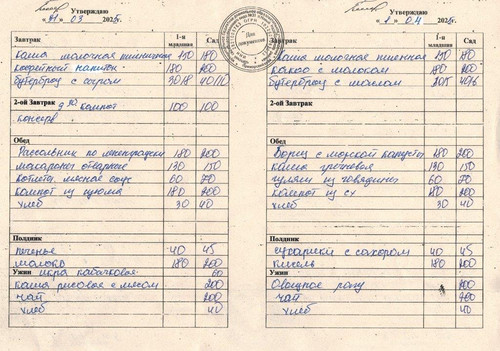 Утверждаю
«31» 03 2025г
1-я младшая Сад
Завтрак
каша молочная пшеничная 150 180
кофейный напиток 180 200
бутерброд с сыром 30/8 40/10
2-ой Завтрак д/30 компот 100 100
консерв
Обед
Рассольник по ленинградски 180 200
макароны отварные 130 150
котлета мясная соус 60 70
компот из изюма 180 200
хлеб 30 40
Полдник
печенье 40 45
молоко 180 200
Ужин икра кабачковая 60
каша рисовая с мясом 200
чай 200
хлеб 40
Для документов
Утверждаю
«1» 04 2025г
1-я младшая Сад
Завтрак
каша молочная пшенная 150 180
какао с молоком 180 200
бутерброд с маслом
2-ой Завтрак
Обед
Борщ с морской капусты 180 200
каша гречневая 130 150
гуляш из говядины 60 70
компот из сх 180 200
хлеб 30 40
Полдник
сухарики с сахаром 40 45
кисель 180 200
Ужин
Овощное рагу 200
чай 200
хлеб 40